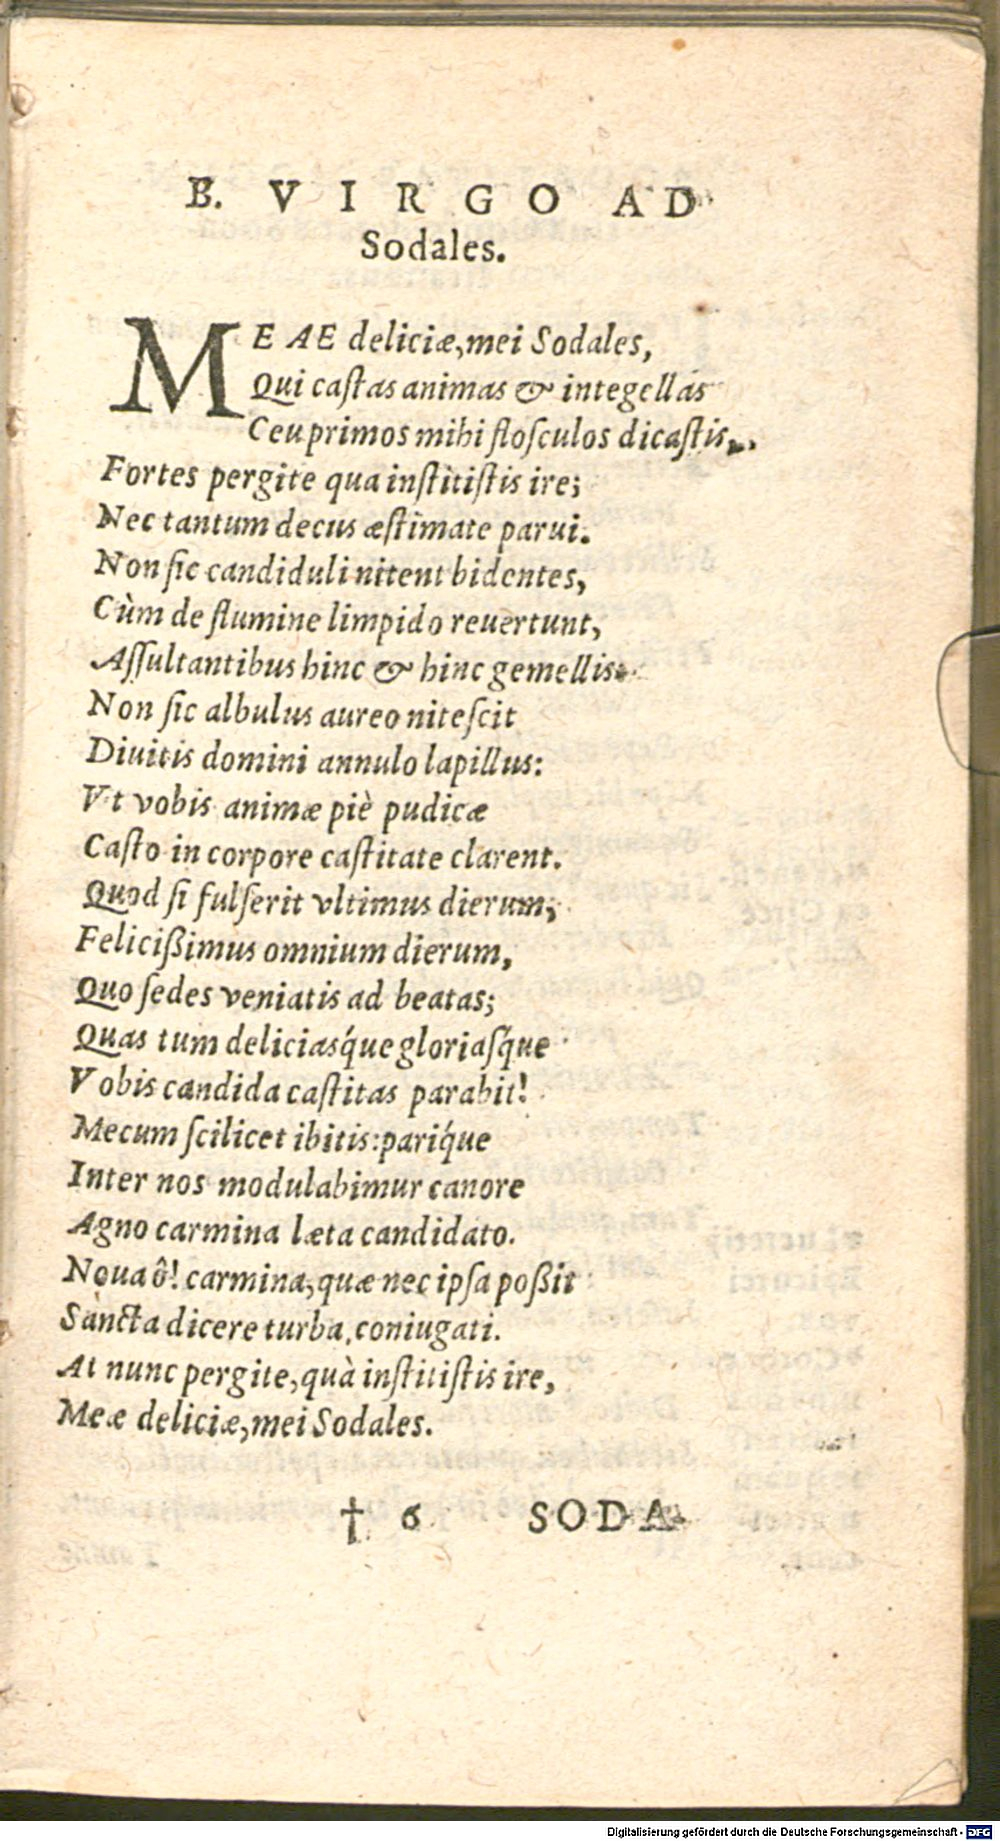 B. VIRGO AD
Sodales.
MEAE deliciæ, mei Sodales,
Qui castas animas & integellas
Ceu primos mihi flosculos dicastis,
Fortes pergite qua institistis ire;
Nec tantum decus æstimate parui.
Non sic candiduli nitent bidentes,
Cùm de flumine limpido reuertunt,
Assultantibus hinc & hinc gemellis.
Non sic albulus aureo nitescit
Diuitis domini annulo lapillus:
Vt vobis animæ piè pudicæ
Casto in corpore castitate clarent.
Quod si fulserit vltimus dierum,
Felicißimus omnium dierum,
Quo sedes veniatis ad beatas;
Quas tum deliciasq́ue gloriasq́ue
Vobis candida castitas parabit!
Mecum scilicet ibitis: pariq́ue
Inter nos modulabimur canore
Agno carmina læta candidato.
Noua ô! carmina, quæ nec ipsa poßit
Sancta dicere turba, coniugati.
At nunc pergite, quà institistis ire,
Meæ deliciæ, mei Sodales.
† 6 SODA-
Digitalisierung gefördert durch die Deutsche Forschungsgemeinschaft - DFG